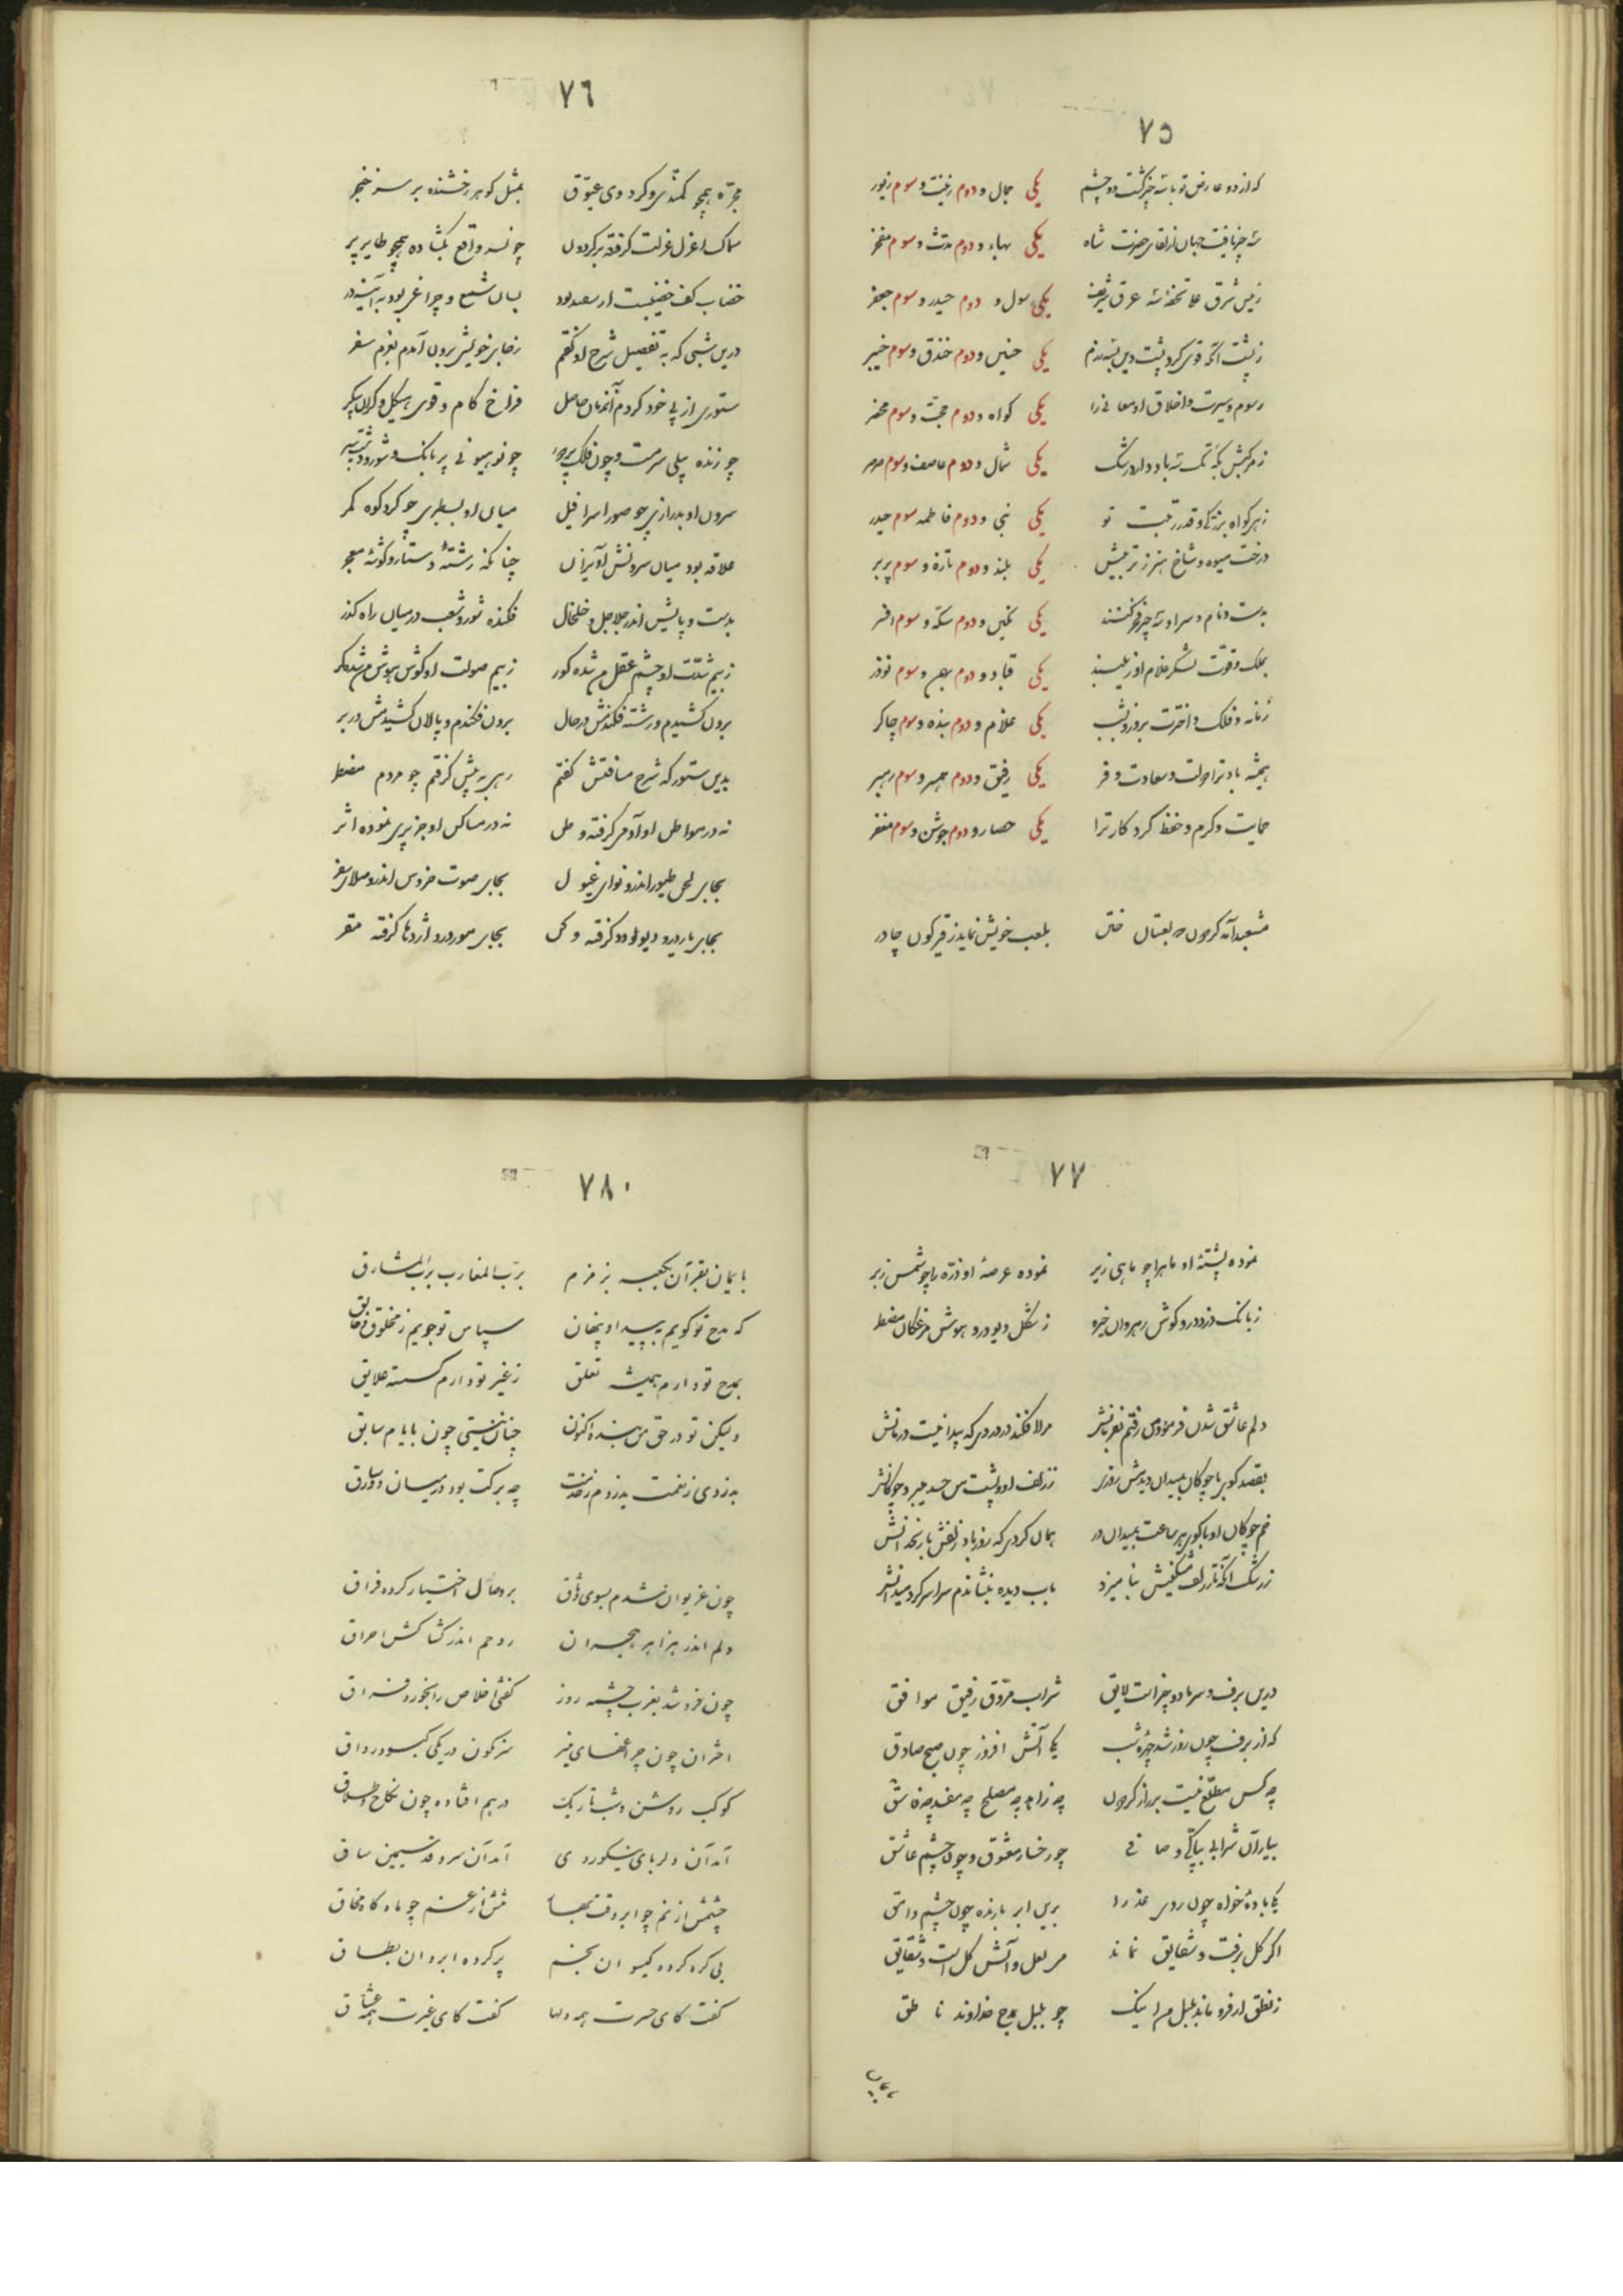 ٧٥
که از دو عارض تو با سه چیز گشت دو چشم یکی جمال و دوم زینت و سوم زیور
سه چیز یافت جهان از لقای حضرت شاه یکی بهاء و دوم و سوم مفخر
زمین شرق علا تحفه سه عرق شریف یکی رسول و دوم حیدر و سوم جعفر
ز پشت آنکه قوی کرد پشت دین بسه رزم یکی حنین و دوم خندق و سوم خیبر
رسوم و سیرت و اخلاق او معانی را یکی گواه و دوم حجت و سوم محضر
ز مرکبش بگه تک سه باد دارد رشک یکی شمال و دوم عاصف و سوم صرصر
ز هر گواه بزرگی و قدر و رتبت تو یکی نبی و دوم فاطمه سوم حیدر
درخت میوه و شاخ هنر ز تربیتش یکی بلند و دوم تازه و سوم پربر
بدست و نام و سر او سه چیز فخر کنند یکی نگین و دوم سکه و سوم افسر
بملک و قوت لشکر غلام او زیبند یکی قباد و دوم بهمن و سوم نوذر
زمانه و فلک و اخترت بروز و شب یکی غلام و دوم بنده و سوم چاکر
همیشه باد ترا دولت و سعادت و فر یکی رفیق و دوم همبر و سوم رهبر
حمایت و کرم و حفظ کردگار ترا یکی حصار و دوم جوشن و سوم مغفر
مشعبد آمد گردون و لعبتان ختن بلعب خویش نماید ز قیرگون چادر
٧٦
مجره همچو کمندی و کرده روی عیوق بمثل گوهر رخشنده بر سر خنجر
سماک اعزل عزلت گرفته بر گردون چو نسر واقع بگشاده همچو طایر پر
خضاب کف خضیبست از سعد بود بسان شمع و چراغی بود به آینه در
درین شبی که به تفصیل شرح او گفتم ز جای خویش برون آمدم بعزم سفر
ستوری از پی خود کردم آنزمان حاصل فراخ گام و قوی هیکل و گران پیکر
چو زنده پیلی سرمست و چون فلک چو نر هیونی پر بانگ و شور و
سرون او بدرازی چو صور اسرافیل میان او بسطبری چو گرد کوه کمر
علاقه بود میان سرونش آویزان چنانکه رشته دستار و گوشه معجر
بدست و پایش اندر جلاجل و خلخال فکنده شور و شغب در میان راه گذر
ز بیم شدت او چشم عقل من شده کور ز بیم صولت او گوش هوش من شده کر
برون کشیدم و رشته فکندش در حال برون فکندم و پالان کشیدمش در بر
بدین ستور که شرح مسافتش گفتم رهی به پیش گرفتم چو مردم مضطر
نه در سواحل او آدمی گرفته وطن نه در مساکن او جز پری نموده اثر
بجای لحن طیور اندرو نوای غول بجای صوت خروس اندرو صلای سقر
بجای مار درو دیو و دد گرفته وکن بجای مور درو اژدها گرفته مقر
٧٧
نموده پشته او ماه را چو ماهی زیر نموده عرصه او ذره را چو شمس زبر
ز بانگ دزد درو گوش رهروان خیره ز شکل دیو درو هوش مضطر
دلم عاشق شدن فرمود من رفتم بفرمانش مرا افکند در دردی که پیدا نیست درمانش
بقصد گوی با چوگان بمیدان دیدمش روزی ز زلف او و پشت من حسد میبرد چوگانش
خم چوگان او با گوی هر ساعت بمیدان در همان کردی که روز باد زلفش با زنخدانش
ز رشک آنکه تا زلف مشکینش نیامیزد باب دیده بنشاندم سراسر گرد میدانش
درین برف و سرما دو چیز است لایق شراب مروق رفیق موافق
که از برف چون روز شد چهره شب یکی آتش افروز چون صبح صادق
چه کس مطلع نیست بر راز گردون چه زاهد چه مصلح چه مفسد چه فاسق
بیار آن شرابی بپاکی و صافی چو رخسار معشوق و چون چشم عاشق
یکی باده خواه چون روی عذرا برین ابر بارنده چون چشم وامق
اگر گل برفت و شقایق نماند می لعل و آتش گل است و شقایق
ز نطق ار فرو ماند بلبل مرا اینک چو بلبل بمدح خداوند ناطق
٧٨
بایمان بقرآن بکعبه بزمزم برب المغارب برب المشارق
که مدح تو گویم به پیدا و پنهان سپاس تو جویم ز مخلوق و خالق
بمدح تو دارم همیشه تعلق ز غیر تو دارم گسسته علایق
ولیکن تو در حق من بنده اکنون چنان نیستی چون بایام سابق
بدزدی ز نعمت بدزدم ز خدمت چه برکت بود در میان دو سارق
چون غریوان شدم بسوی وثاق بر وصال اختیار کرده فراق
دلم اندر هزاهز هجران روحم اندر کشاکش احراق
چون فرو شد بغرب چشمه روز گفتی اخلاص را بخورد نفاق
اختران چون چراغهای منیر سرنگون در یکی کبود رواق
کوکب روشن و شب تاریک درهم افتاده چون نکاح و طلاق
آمد آن دلربای نیکوروی آمد آن سرو قد سیمین ساق
چشمش از نم چو ابر وقت بهار تنش از غم چو ماه گاه محاق
بی گره کرده گیسوان بخشم پر گره ابروان بطاق
گفت کای حسرت همه دلها گفت کای غیرت همه عشاق